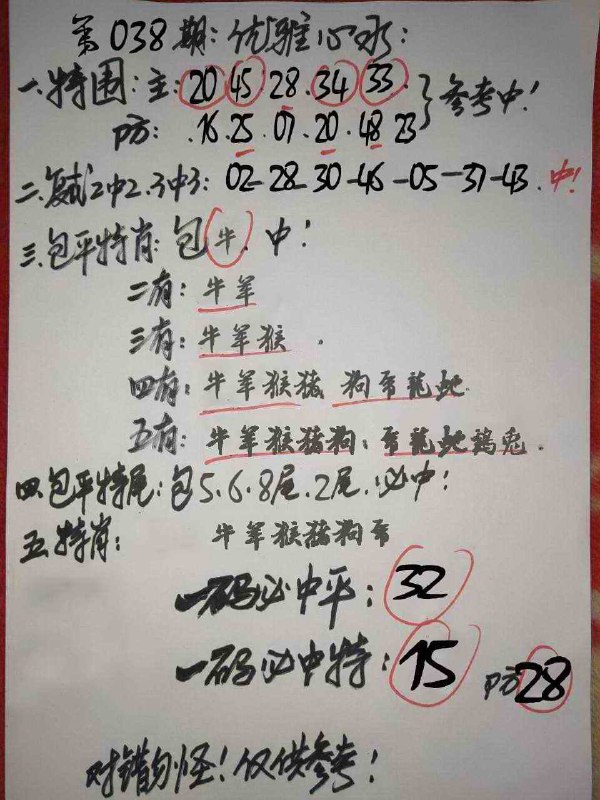 第038期:优雅心水:
一.特围:主:20 45.28.34 33.
防:.16.25.07.20.48 23 }参考中!
二.复式2中2.3中3:02-28-30-46-05-37-43.中!
三.包平特肖:包牛.中!
二有:牛羊
三有:牛羊猴.
四有:牛羊猴猪 狗 龍蛇.
五有:牛羊猴猪狗. 龍蛇鷄兎.
四.包平特尾:包5.6.8尾.2尾.必中!
五.特肖: 牛羊猴猪狗
一码必中平:32
一码必中特:15 防28
对错勿怪!仅供参考!